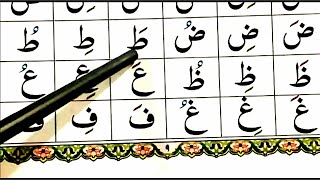 ضَ ضِ ضُ طَ طِ طُ
ظَ ظِ ظُ عَ عِ عُ
غَ غِ غُ فَ فِ